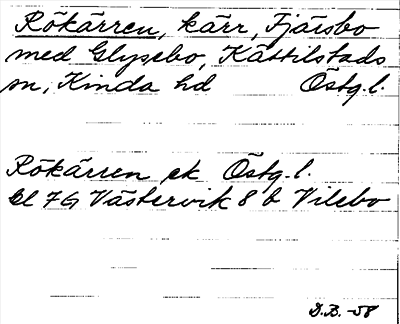 Rökärren, kärr, Fjärsbo
med Glysebo, Kättilstads
sn, Kinda hd Östg.l.
Rökärren ek Östg.l.
bl 7G Västervik 8 b Vilebo
D.B. -58